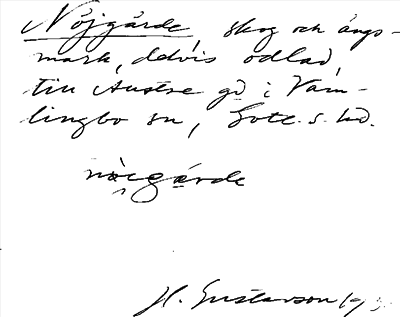 Nöjgårde, skog och ängs-
mark, delvis odlad,
till Austre gd i Väm-
lingbo sn, Gotl. s. hd.
H. Gustavson